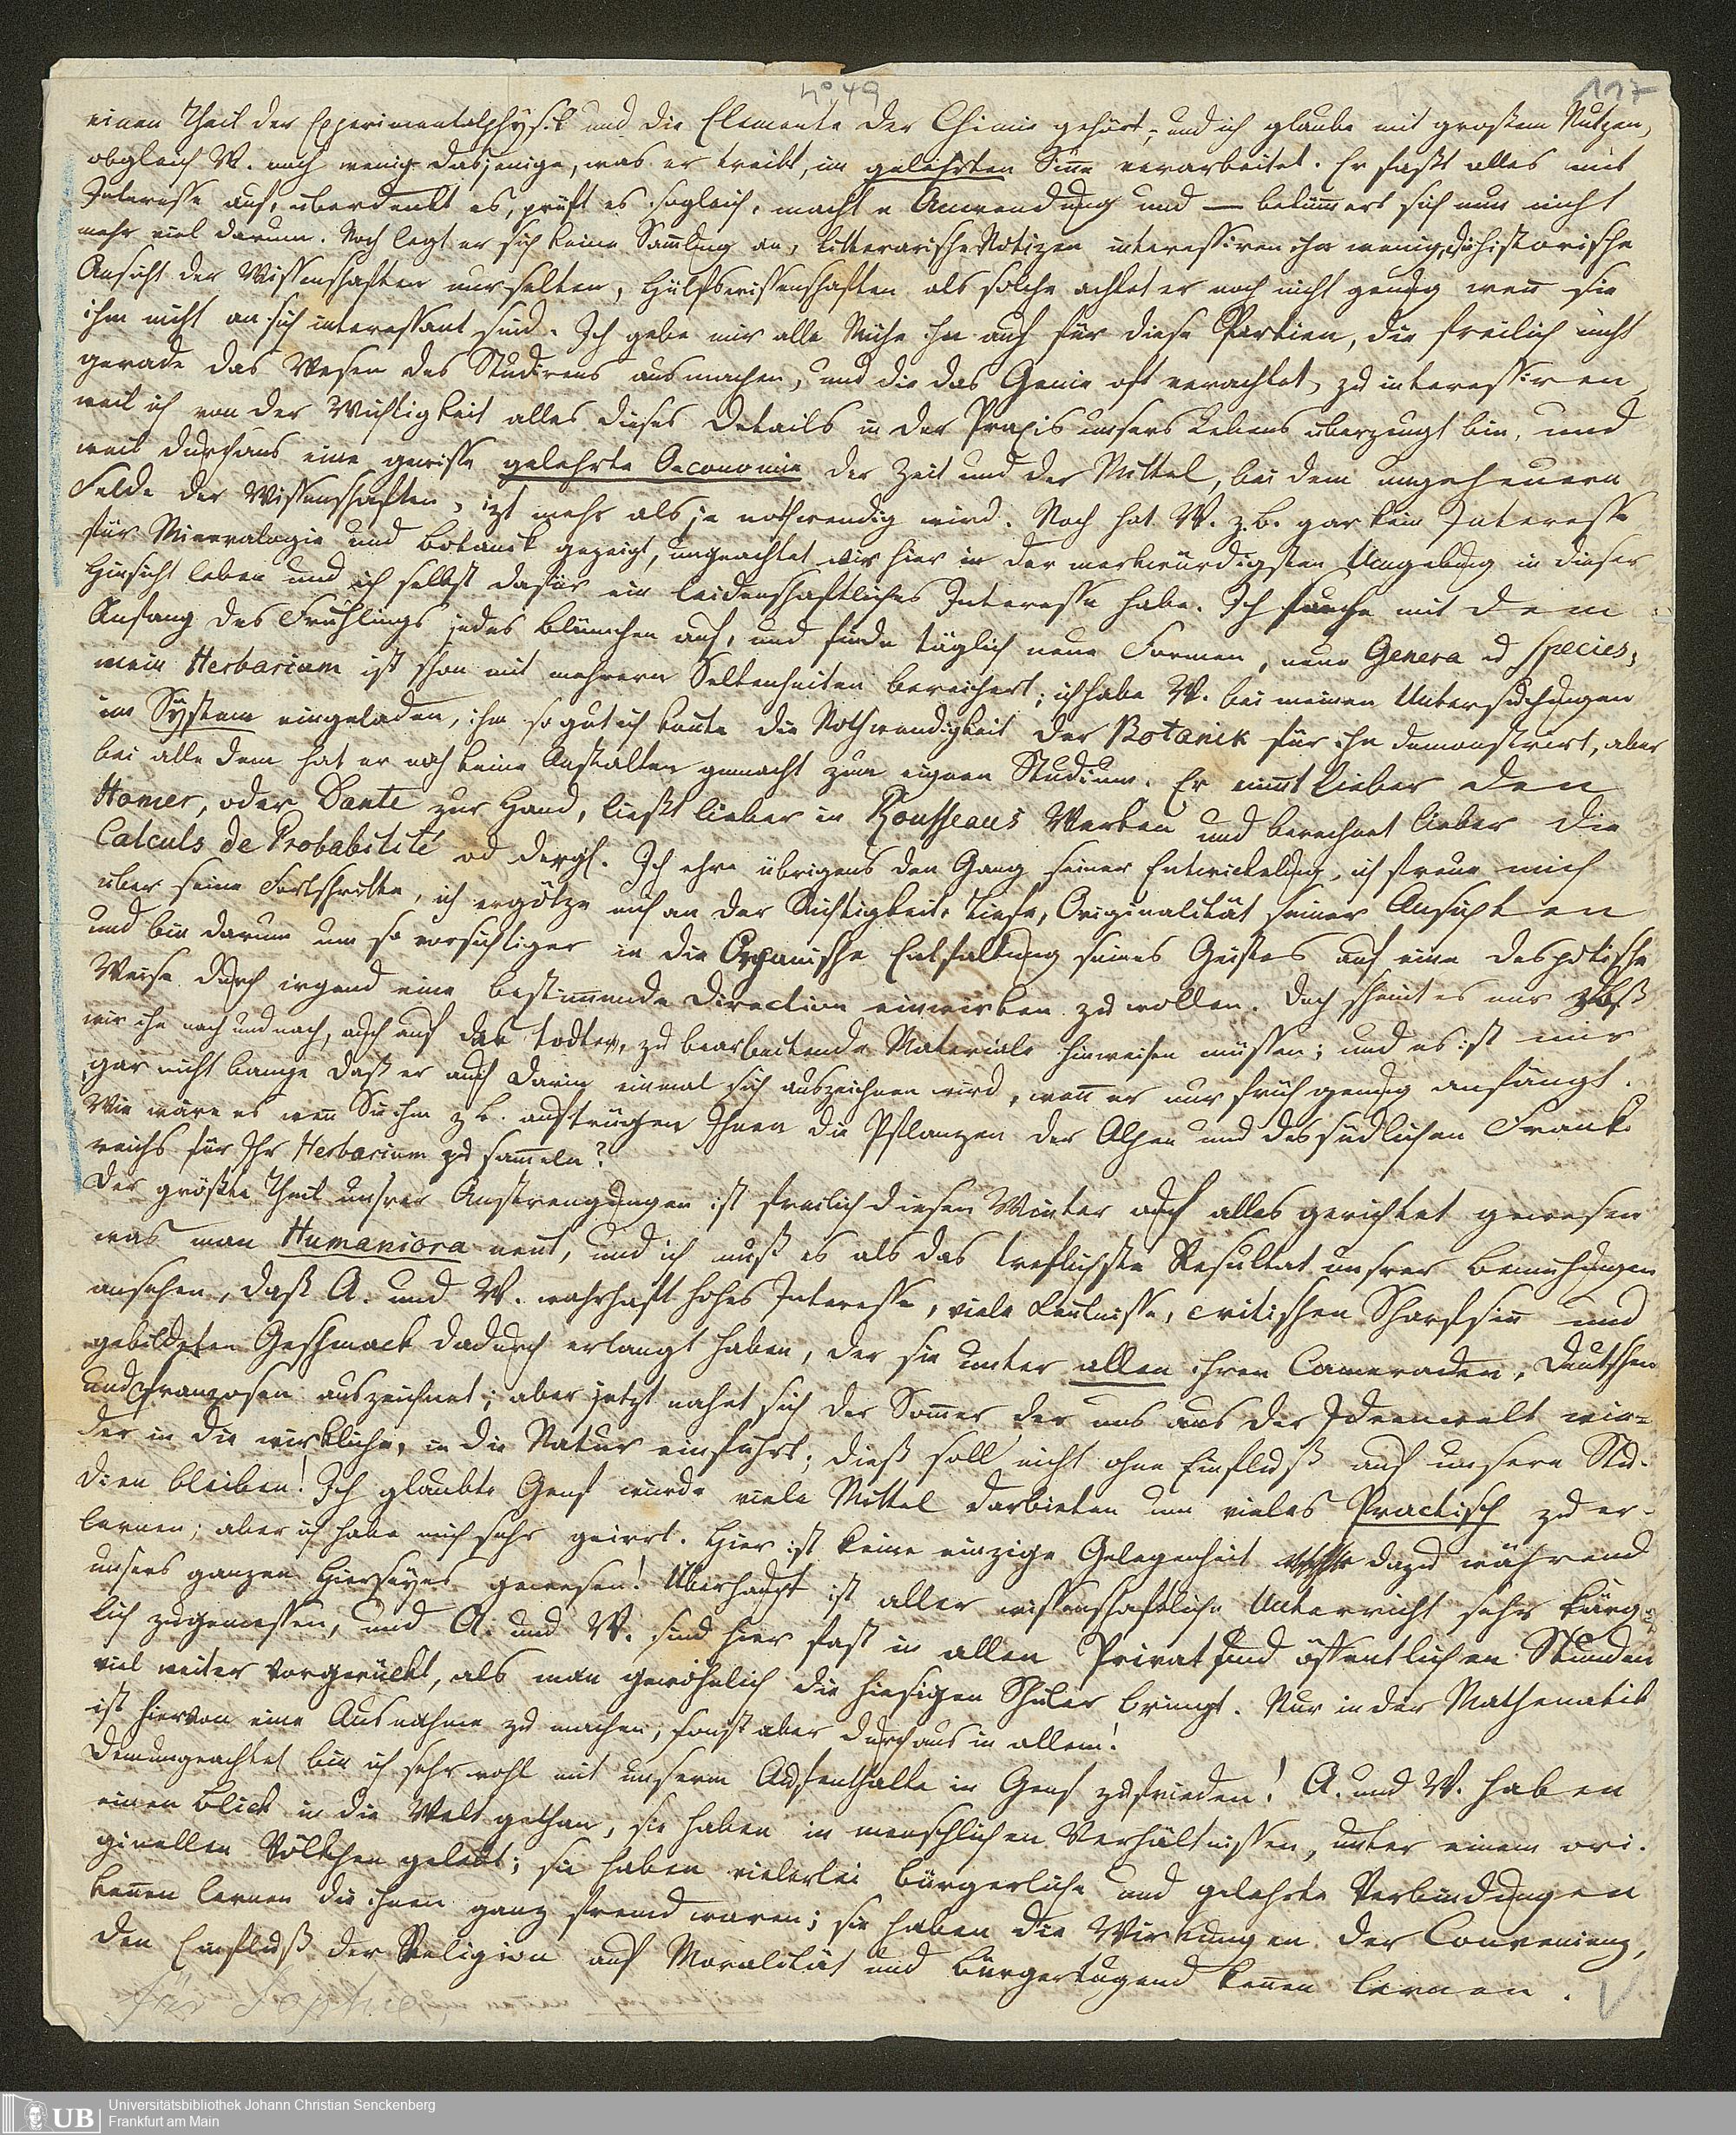 nº 49
117
einen Theil der Experimentalphysik und die Elemente der Chimie gehört; und ich glaube mit großem Nutzen,
obgleich W. noch wenig dasjenige, was er treibt, im gelehrten Siñe verarbeitet. Er faßt alles mit
Interesse auf, überdenkt es, prüft es sogleich, macht Anwendung und — bekümert sich nun nicht
mehr viel darum. Noch legt er sich keine Samlung an, litterarische Notizen interessiren ihn wenig, die historische
Ansicht der Wissenschaften nur selten, Hülfswissenschaften als solche achtet er noch nicht genug weñ sie
ihm nicht an sich interessant sind. Ich gebe mir alle Mühe ihn auch für diese Partien, die freilich nicht
gerade das Wesen des Studirens ausmachen, und die das Genie oft verachtet, zu interessiren
weil ich von der Wichtigkeit alles dieses Details in der Praxis unsers Lebens überzeugt bin, und
weil durchaus eine gewisse gelehrte Oeconomie der Zeit und der Mittel, bei dem ungeheuern
Felde der Wissenschaften, izt mehr als je nothwendig wird. Noch hat W. z.b. gar kein Interesse
für Mineralogie und Botanik gezeigt, ungeachtet wir hier in der merkwürdigsten Umgebung in dieser
Hinsicht leben und ich selbst dafür ein leidenschaftliches Interesse habe. Ich suche mit dem
Anfang des Frühlings jedes Blümchen auf, und finde täglich neue Formen, neue Genera od Species;
mein Herbarium ist schon mit mehrern Seltenheiten bereichert; ich habe W. bei meinen Untersuchungen
im System eingeladen, ihm so gut ich konte die Nothwendigkeit der Botanik für ihn demonstrirt, aber
bei alle dem hat er noch keine Anstalten gemacht zum eignen Studium. Er nimt lieber den
Homer, oder Dante zur Hand, ließt lieber in Rousseaus Werken und berechnet lieber die
Calculs de Probabilité od dergl. Ich ehre übrigens den Gang seiner Entwickelung, ich freue mich
über seine Fortschritte, ich ergötze mich an der Richtigkeit, Tiefe, Originalität seiner Ansichten
und bin darum um so vorsichtiger in die Organische Entfaltung seines Geistes auf eine despotische
Weise durch irgend eine bestimmende Direction einwirken zu wollen. Doch scheint es mir
wir ihn nach und nach, auch auf das todte, zu bearbeitende Materiale hinweisen müssen; und es ist mir
gar nicht bange daß er auch darin einmal sich auszeichnen wird, weñ er nur früh genug anfängt.
Wie wäre es weñ Sie ihm z b. auftrügen Ihnen die Pflanzen der Alpen und des südlichen Frank-
reichs für Ihr Herbarium zu sameln?
Der größte Theil unsrer Anstrengungen ist freilich diesen Winter auf alles gerichtet gewesen
was man Humaniora neñt, und ich muß es als das treflichste Resultat unsrer Bemühungen
ansehen, daß A. und W. wahrhaft hohes Interesse, viele Keñtnisse, critischen Scharfsiñ und
gebildeten Geschmack dadurch erlangt haben, der sie unter allen ihren Cameraden, Deutschen
und Franzosen auszeichnet; aber jetzt nahet sich der Somer der uns aus der Ideenwelt wie-
der in die wirkliche, in die Natur einführt; dieß soll nicht ohne Einfluß auf unsere Stu-
dien bleiben! Ich glaubte Genf würde viele Mittel darbieten um vieles Practisch zu er-
lernen; aber ich habe mich sehr geirrt. Hier ist keine einzige Gelegenheit dazu während
unsers ganzen Hierseyns gewesen! Überhaupt ist aller wissenschaftliche Unterricht sehr kärg-
lich zugemessen, und A. und W. sind hier fast in allen Privat und öffentlichen Stunden
viel weiter vorgerückt, als man gewöhnlich die hiesigen Schüler bringt. Nur in der Mathematik
ist hiervon eine Ausnahme zu machen, sonst aber durchaus in allem!
Demungeachtet bin ich sehr wohl mit unserm Aufenthalte in Genf zufrieden! A. und W. haben
einen Blick in die Welt gethan, sie haben in menschlichen Verhältnissen, unter einem ori-
ginellen Völkchen gelebt; sie haben vielerlei bürgerliche und gelehrte Verbindungen
keñen lernen die ihnen ganz fremd waren; sie haben die Wirkungen der Convenienz,
den Einfluß der Religion auf Moralität und Bürgertugend keñen lernen.
für Sophie
UB
Universitätsbibliothek Johann Christian Senckenberg
Frankfurt am Main